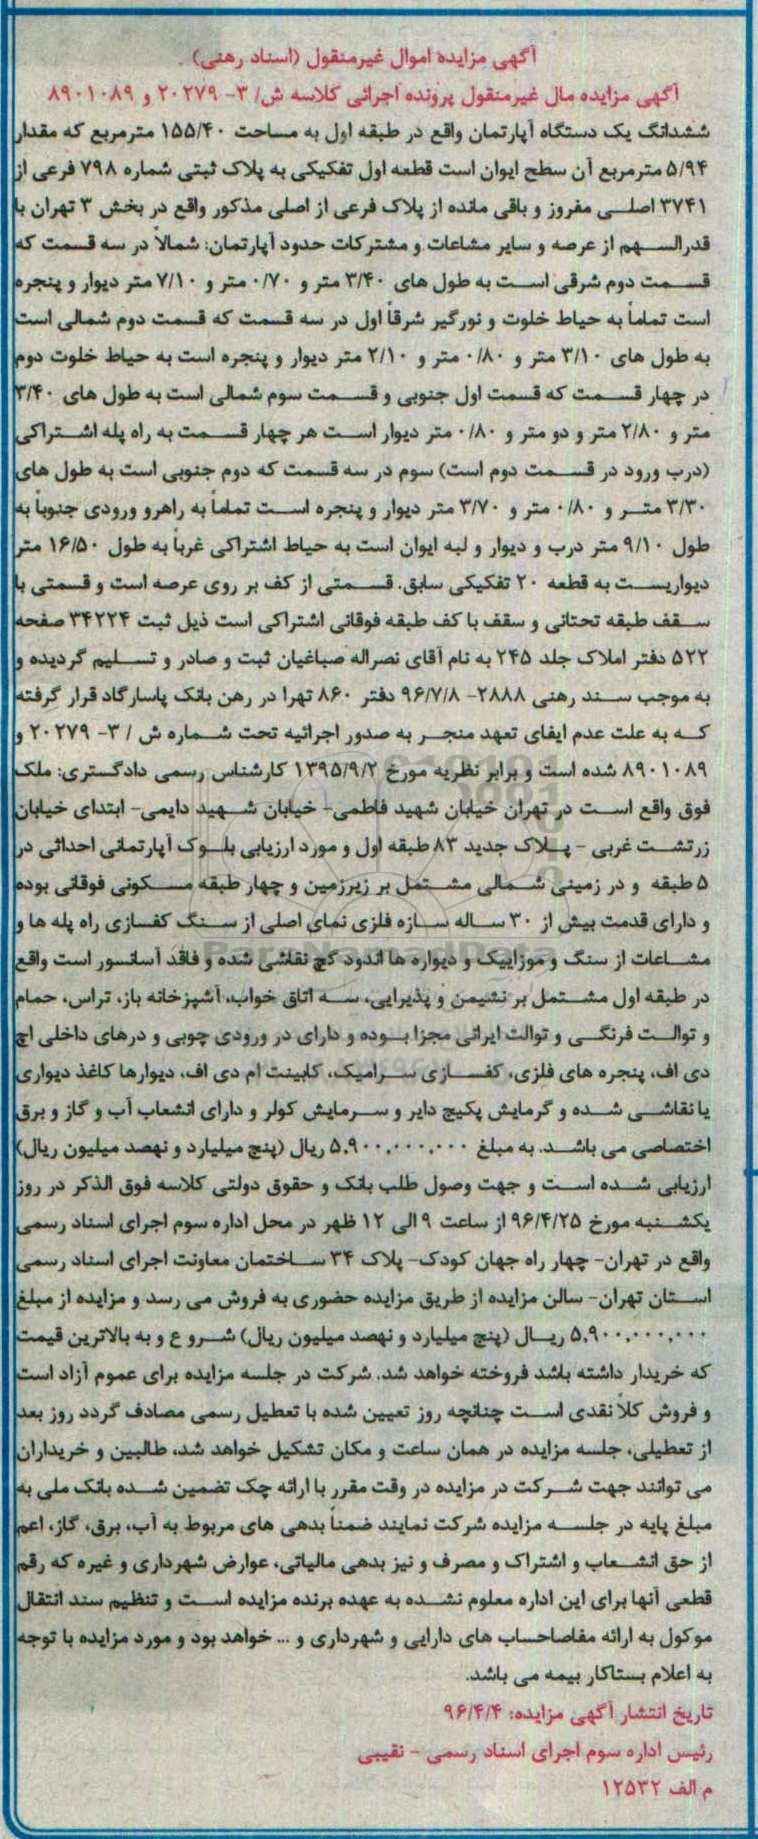 آگهی مزایده اموال غیرمنقول (اسناد رهنی)
آگهی مزایده مال غیرمنقول پرونده اجرائی کلاسه ش/ ۳- ۲۰۲۷۹ و ۸۹۰۱۰۸۹
ششدانگ یک دستگاه آپارتمان واقع در طبقه اول به مساحت ۱۵۵/۴۰ مترمربع که مقدار
۵/۹۴ مترمربع آن سطح ایوان است قطعه اول تفکیکی به پلاک ثبتی شماره ۷۹۸ فرعی از
۳۷۴۱ اصلی مفروز و باقی مانده از پلاک فرعی از اصلی مذکور واقع در بخش ۳ تهران با
قدرالسهم از عرصه و سایر مشاعات و مشترکات حدود آپارتمان: شمالاً در سه قسمت که
قسمت دوم شرقی است به طول های ۳/۴۰ متر و ۰/۷۰ متر و ۷/۱۰ متر دیوار و پنجره
است تماماً به حیاط خلوت و نورگیر شرقاً اول در سه قسمت که قسمت دوم شمالی است
به طول های ۳/۱۰ متر و ۰/۸۰ متر و ۲/۱۰ متر دیوار و پنجره است به حیاط خلوت دوم
در چهار قسمت که قسمت اول جنوبی و قسمت سوم شمالی است به طول های ۳/۴۰
متر و ۲/۸۰ متر و دو متر و ۰/۸۰ متر دیوار است هر چهار قسمت به راه پله اشتراکی
(درب ورود در قسمت دوم است) سوم در سه قسمت که دوم جنوبی است به طول های
۳/۳۰ متر و ۰/۸۰ متر و ۳/۷۰ متر دیوار و پنجره است تماماً به راهرو ورودی جنوباً به
طول ۹/۱۰ متر درب و دیوار و لبه ایوان است به حیاط اشتراکی غرباً به طول ۱۶/۵۰ متر
دیواریست به قطعه ۲۰ تفکیکی سابق. قسمتی از کف بر روی عرصه است و قسمتی با
سقف طبقه تحتانی و سقف با کف طبقه فوقانی اشتراکی است ذیل ثبت ۳۴۲۲۴ صفحه
۵۲۲ دفتر املاک جلد ۲۴۵ به نام آقای نصراله صباغیان ثبت و صادر و تسلیم گردیده و
به موجب سند رهنی ۲۸۸۸- ۹۶/۷/۸ دفتر ۸۶۰ تهرا در رهن بانک پاسارگاد قرار گرفته
که به علت عدم ایفای تعهد منجر به صدور اجرائیه تحت شماره ش / ۳- ۲۰۲۷۹ و
۸۹۰۱۰۸۹ شده است و برابر نظریه مورخ ۱۳۹۵/۹/۲ کارشناس رسمی دادگستری: ملک
فوق واقع است در تهران خیابان شهید فاطمی- خیابان شهید دایمی- ابتدای خیابان
زرتشت غربی - پلاک جدید ۸۳ طبقه اول و مورد ارزیابی بلوک آپارتمانی احداثی در
۵ طبقه و در زمینی شمالی مشتمل بر زیرزمین و چهار طبقه مسکونی فوقانی بوده
و دارای قدمت بیش از ۳۰ ساله سازه فلزی نمای اصلی از سنگ کفسازی راه پله ها و
مشاعات از سنگ و موزاییک و دیواره ها اندود گچ نقاشی شده و فاقد آسانسور است واقع
در طبقه اول مشتمل بر نشیمن و پذیرایی، سه اتاق خواب، آشپزخانه باز، تراس، حمام
و توالت فرنگی و توالت ایرانی مجزا بوده و دارای در ورودی چوبی و درهای داخلی اچ
دی اف، پنجره های فلزی، کفسازی سرامیک، کابینت ام دی اف، دیوارها کاغذ دیواری
یا نقاشی شده و گرمایش پکیج دایر و سرمایش کولر و دارای انشعاب آب و گاز و برق
اختصاصی می باشد. به مبلغ ۵,۹۰۰,۰۰۰,۰۰۰ ریال (پنج میلیارد و نهصد میلیون ریال)
ارزیابی شده است و جهت وصول طلب بانک و حقوق دولتی کلاسه فوق الذکر در روز
یکشنبه مورخ ۹۶/۴/۲۵ از ساعت ۹ الی ۱۲ ظهر در محل اداره سوم اجرای اسناد رسمی
واقع در تهران- چهار راه جهان کودک- پلاک ۳۴ ساختمان معاونت اجرای اسناد رسمی
استان تهران- سالن مزایده از طریق مزایده حضوری به فروش می رسد و مزایده از مبلغ
۵,۹۰۰,۰۰۰,۰۰۰ ریال (پنج میلیارد و نهصد میلیون ریال) شرو ع و به بالاترین قیمت
که خریدار داشته باشد فروخته خواهد شد. شرکت در جلسه مزایده برای عموم آزاد است
و فروش کلاً نقدی است چنانچه روز تعیین شده با تعطیل رسمی مصادف گردد روز بعد
از تعطیلی، جلسه مزایده در همان ساعت و مکان تشکیل خواهد شد. طالبین و خریداران
می توانند جهت شرکت در مزایده در وقت مقرر با ارائه چک تضمین شده بانک ملی به
مبلغ پایه در جلسه مزایده شرکت نمایند ضمناً بدهی های مربوط به آب، برق، گاز، اعم
از حق انشعاب و اشتراک و مصرف و نیز بدهی مالیاتی، عوارض شهرداری و غیره که رقم
قطعی آنها برای این اداره معلوم نشده به عهده برنده مزایده است و تنظیم سند انتقال
موکول به ارائه مفاصاحساب های دارایی و شهرداری و ... خواهد بود و مورد مزایده با توجه
به اعلام بستاکار بیمه می باشد.
تاریخ انتشار آگهی مزایده: ۹۶/۴/۴
رئیس اداره سوم اجرای اسناد رسمی - نقیبی
م الف ۱۲۵۳۲